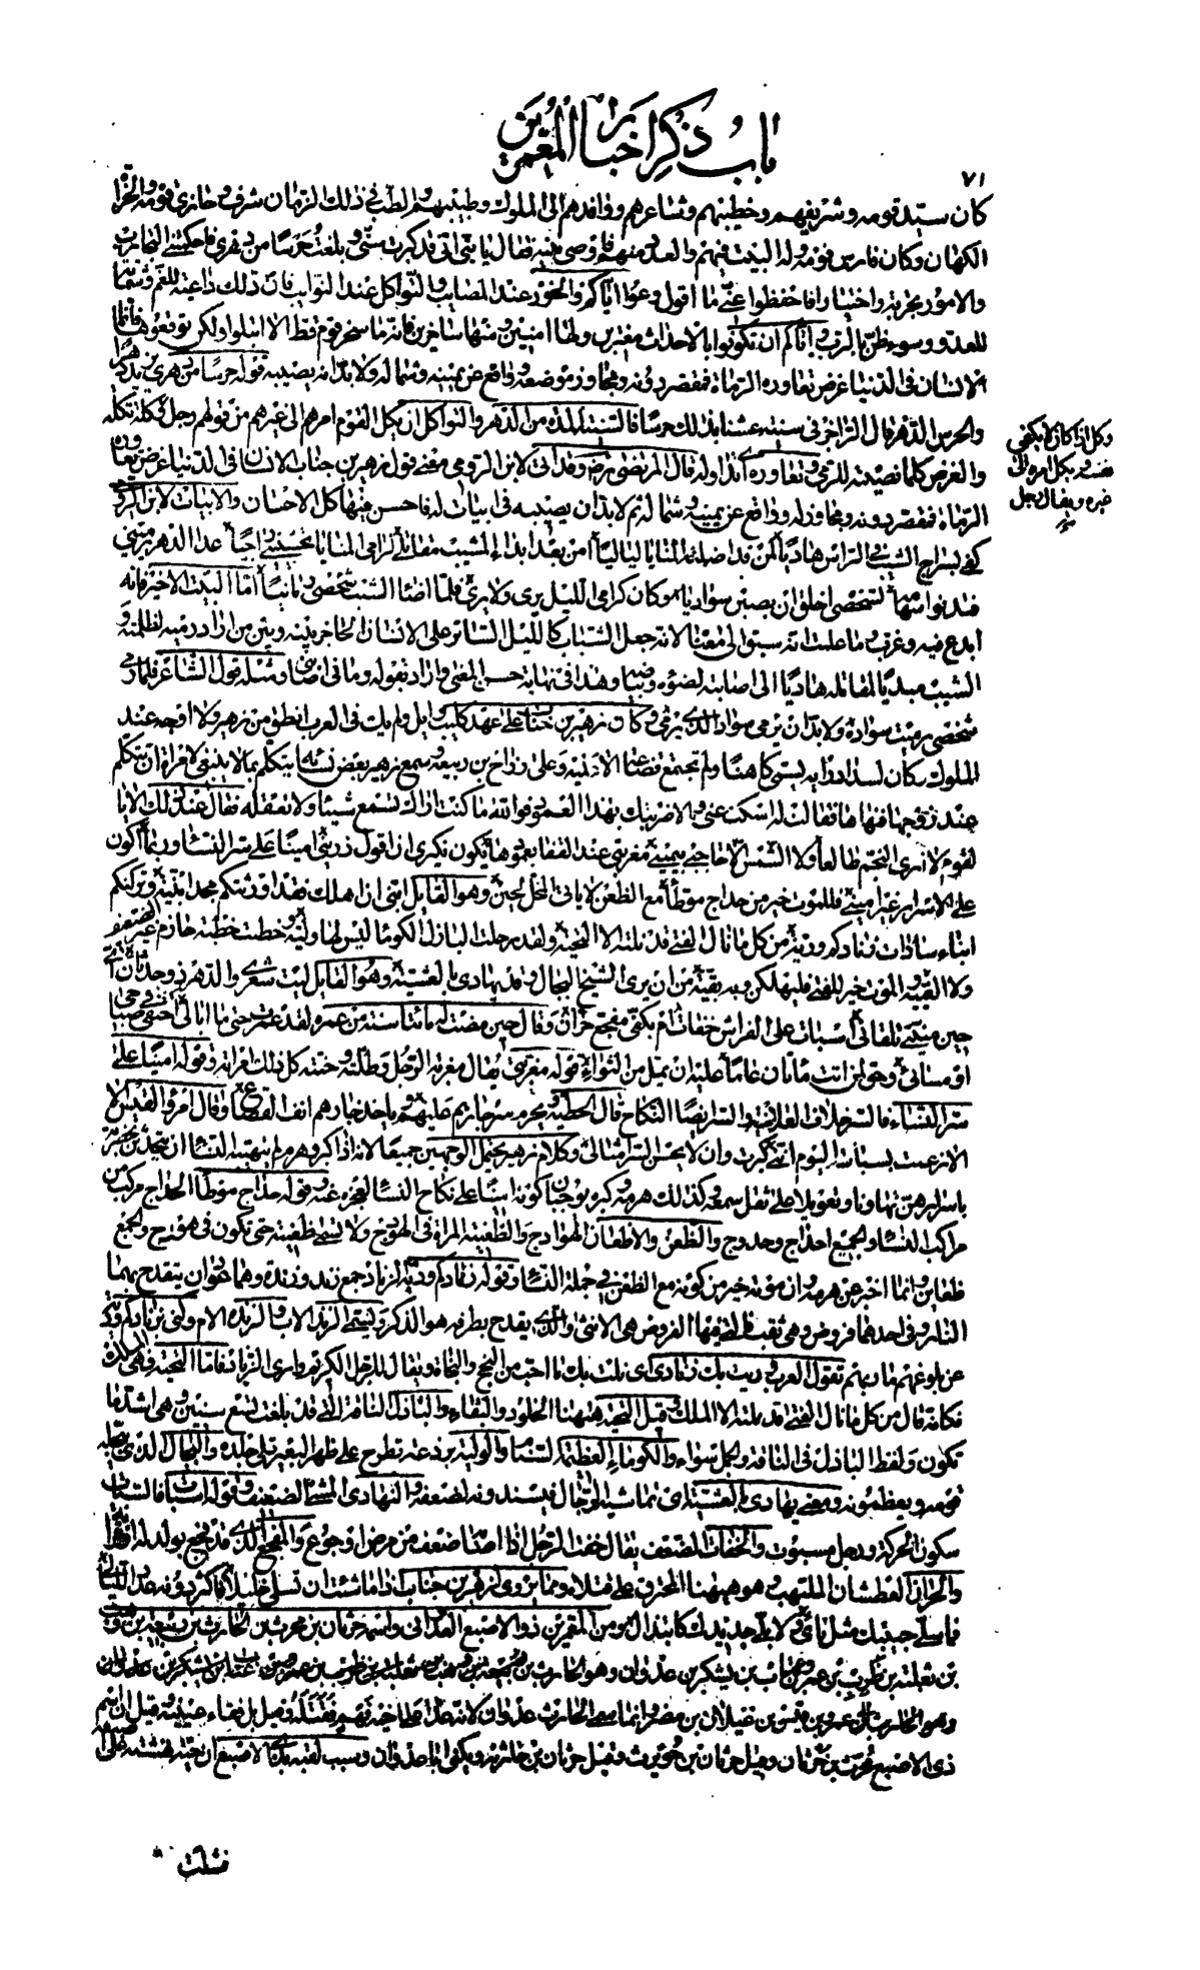 باب ذكر اخبار المعمرين
٧١
كان سيد قومه وشريفهم وخطيبهم وشاعرهم ووافدهم الى الملوك وطبيبهم والطب فى ذلك الزمان شرف وحازى قومه والحزاة
الكهان وكان فارس قومه وله البيت فيهم والعدد منهم فاوصى بنيه فقال يا بنى انى قد كبرت سنى وبلغت حرسا من دهرى فاحكمتنى التجارب
والامور تجربة واختبار فاحفظوا عنى ما اقول وعوا اياكم والخور عند المصايب والتواكل عند النوايب فان ذلك داعية للغم وشماتة
للعدو وسوء ظن بالرب واياكم ان تكونوا بالاحداث مغترين ولها امنين ومنها ساخرين فانه ما سخر قوم قط الا ابتلوا ولكن توقعوها فانما
الانسان فى الدنيا غرض تعاوره الرماة فمقصر دونه ومجاوز موضعه وواقع عن يمينه وشماله ولا بد انه يصيبه قوله حرسا من دهرى يريد دهرا
والحرس الدهر قال الراجز فى سنية عشنا بذلك حرسا فالسنية المدة من الدهر والتواكل ان يكل القوم امرهم الى غيرهم من قولهم رجل وكلة تكلة
والغرض كلما نصبته للرمى وتعاوره اى تداوله قال المرتضى رض وقد اتى لابن الرومى معنى قول زهير بن جناب الانسان فى الدنيا غرض تعاوره
الرماة فمقصر دونه ومجاوز له وواقع عن يمينه وشماله ثم لا بد ان يصيبه فى ابيات له فاحسن فيها كل الاحسان والابيات لابن الرومى
كفى بسراج الشيب فى الراس هاديا لمن قد اضلته المنايا لياليا امن بعد ابداء المشيب مقاتلى لرامى المنايا تحسبنى ناجيا غدا الدهر يرمينى
فتدنوا سهامه لشخصى اخلق ان يصبن سواديا وكان كرامى الليل يرمى ولا يرى فلما اضاء الشيب شخصى رمانيا اما البيت الاخير فانه
ابدع فيه وغرب وما علمت انه سبق الى معناه لانه جعل الشباب كالليل الساتر على الانسان الحاجز بينه وبين من اراد رميه لظلمته و
الشيب مبديا لمقاتله هاديا الى اصابته لضوئه وبياضه وهذا فى نهاية حسن المعنى واراد بقوله رمانى اصابنى ومثله قول الشاعر فلما رمى
شخصى رميت سواده ولا بد ان يرمى سواد الذى يرمى وكان زهير بن جناب على عهد كليب وايل ولم يك فى العرب انطق من زهير ولا اوجه عند
الملوك وكان لسداد رايه يسمى كاهنا ولم تجتمع قضاعة الا عليه وعلى رزاح بن ربيعة وسمع زهير بعض نسائه يتكلم بما لا ينبغى لامراة ان تتكلم
عند زوجها فنهاها فقالت له اسكت عنى والا ضربتك بهذا العمود فوالله ما كنت اراك تسمع شيئا ولا تعقله فقال عند ذلك الا يا
لقوم لا ارى النجم طالعا ولا الشمس الا حاجبى بيمينى معزبتى عند القفا بعمودها يكون نكيرى ان اقول ذرينى امينا على سر النساء وربما اكون
على الاسرار غير امين فللموت خير من حداج موطأ مع الظعن لا ياتى المحل لحين وهو القايل ابنى ان اهلك فقد اورثتكم مجدا بنية وتركتكم
ابناء سادات زنادكم وريه من كل ما نال الفتى قد نلته الا التحية ولقد رحلت البازل الكوماء ليس لها ولية وخطبت خطبة حازم غير الضعيف
ولا العييه والموت خير للفتى فليهلكن وبه بقية من ان يرى الشيخ البجال وقد يهادى بالعشية وهو القايل ليت شعرى والدهر ذو حدثان اى
حين منيتى تلقانى اسبات على الفراش خفات ام بكفى مفجع حران وقال حين مضت له مائتا سنة من عمره لقد عمرت حتى ما ابالى احتفى فى صباح
او مسائى وحق لمن اتت مائتان عاما عليه ان يمل من الثواء قوله معزبتى يقال معزبة الرجل وطلته وحنته كل ذلك امراته وقوله امينا على
سر النساء فالسر خلاف العلانية والسر ايضا النكاح قال الحطيئة ويحرم سر جارتهم عليهم وياكل جارهم انف القصاع وقال امرؤ القيس الا
الا زعمت بسباسة اليوم اننى كبرت وان لا يحسن السر امثالى وكلام زهير يحتمل الوجهين جميعا لانه اذا كبر وهرم لم تتهيبه النساء ان يتحدثن بحضرته
باسرارهن تهاونا وتعويلا على ثقل سمعه وكذلك هرمه وكبره يوجبان كونه امينا على نكاح النساء لعجزه عنه وقوله حداج موطأ الحداج مركب من
مراكب النساء والجميع احداج وحدوج والظعن والاظعان الهوادج والظعينة المراة فى الهودج ولا تسمى ظعينة حتى تكون فى هودج والجمع
ظعاين وانما اخبر عن هرمه وان موته خير من كونه مع الظعن فى جملة النساء وقوله زنادكم ورية الزناد جمع زند وزندة وهما عودان يتقدح بهما
النار وفى احدهما فروض وهى ثقب فالتى فيها الفروض هى الانثى والذى يقدح بطرفه هو الذكر ويسمى الزند الاب والزندة الام وكنى بزنادكم ورية
عن بلوغهم ماربهم تقول العرب وريت بك زنادى اى نلت بك ما احب من النجح والنجاة ويقال للرجل الكريم وارى الزناد فاما التحية فهى الملك
فكانه قال من كل ما نال الفتى قد نلته الا الملك وقيل التحية هيهنا الخلود والبقاء والبازل الناقة التى قد بلغت تسع سنين وهى اشد ما
تكون ولفظ البازل فى الناقة والجمل سواء والكوماء العظيمة السنام والولية برذعة تطرح على ظهر البعير تلى جلده والبجال الذى يبجله
قومه ويعظمونه ومعنى يهادى بالعشية اى تماشيه الرجال فيسندونه لضعفه والتهادى المشى الضعيف وقوله اسبات فالسبات
سكون الحركة ورجل مسبوت والخفات الضعف يقال خفت الرجل اذا اصابه ضعف من مرض او جوع والمفجع الذى قد فجع بولد له او قرابة
والحران العطشان الملتهب وهو هيهنا المحزون على قتلاه ومما يروى لزهير بن جناب اذا ما شئت ان تسلى خليلا فاكثر دونه عدد الليالى
فما سلى حبيبك مثل نائى ولا بلى جديدك كابتذال ومن المعمرين ذو الاصبع العدوانى واسمه حرثان بن محرث بن الحارث بن ربيعة بن وهب
بن ثعلبة بن ظرب بن عمرو بن عتاب بن يشكر بن عدوان وهو الحارث
وهو الحارث بن عمرو بن قيس بن عيلان بن مضر وانما سمى الحارث عدوان لانه عدا على اخيه فهم فقتله وقيل بل فقاء عينيه وقيل ان اسم
ذى الاصبع محرث بن حرثان وقيل حرثان بن حويرث وقيل حرثان بن حارثة ويكنى ابا عدوان وسبب لقبه بذى الاصبع ان حية نهشته على
وكل اذا كان لا يكفى
نفسه ويكل امره الى
غيره ويقال رجل
فشلت